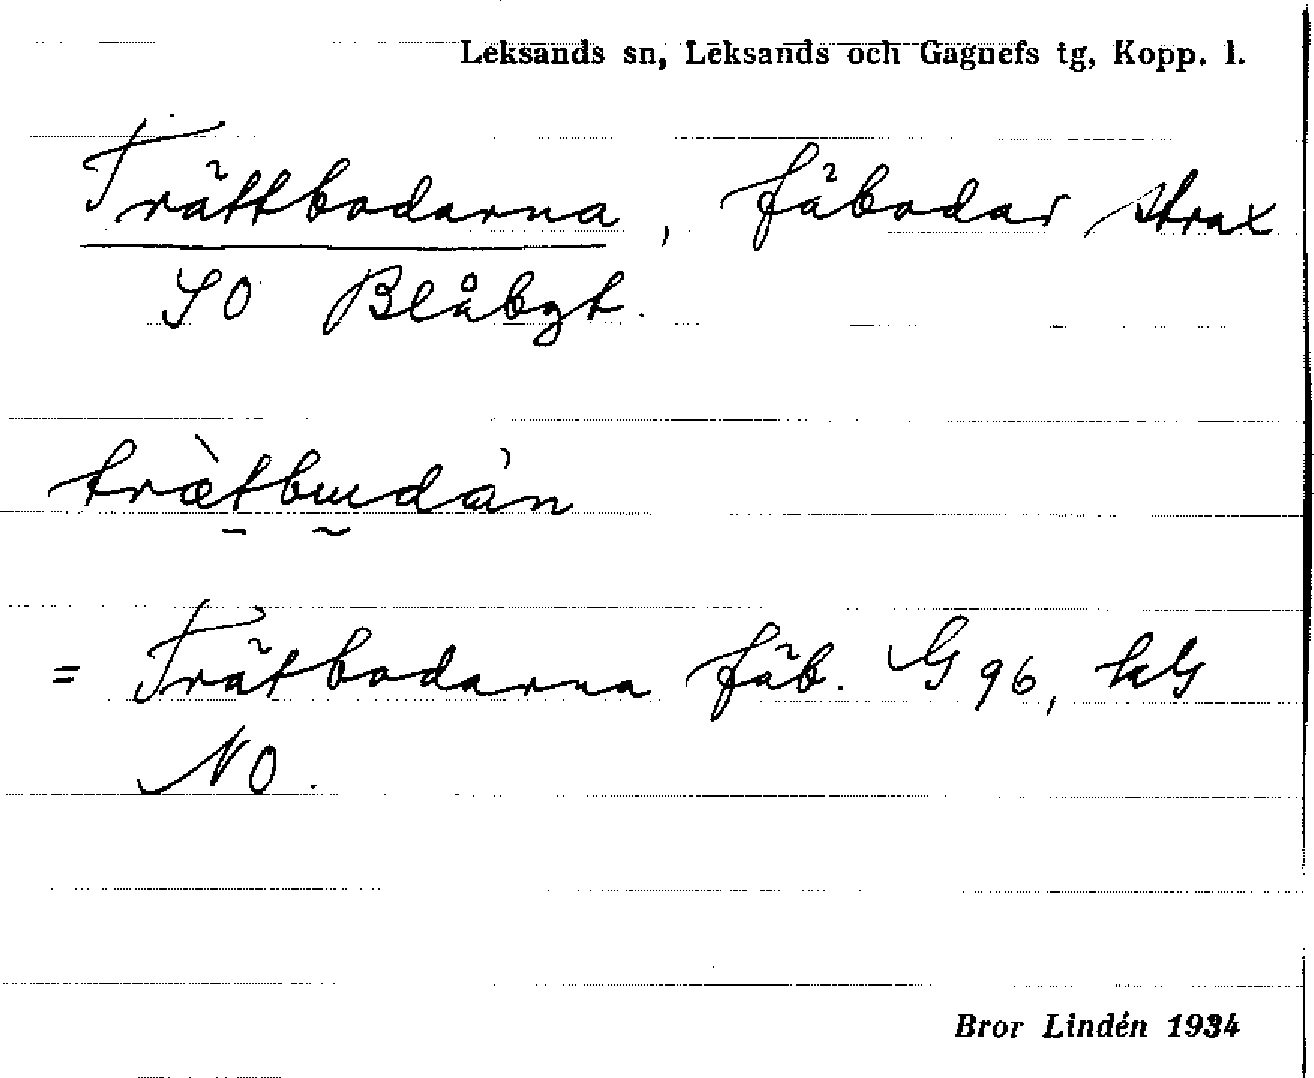 Leksands sn, Leksands och Gagnefs tg, Kopp. l.
Trättbodarna, fäbodar strax
SO Blåbgt.
= Trätbodarna fäb. G 96, hG
NO.
Bror Lindén 1934